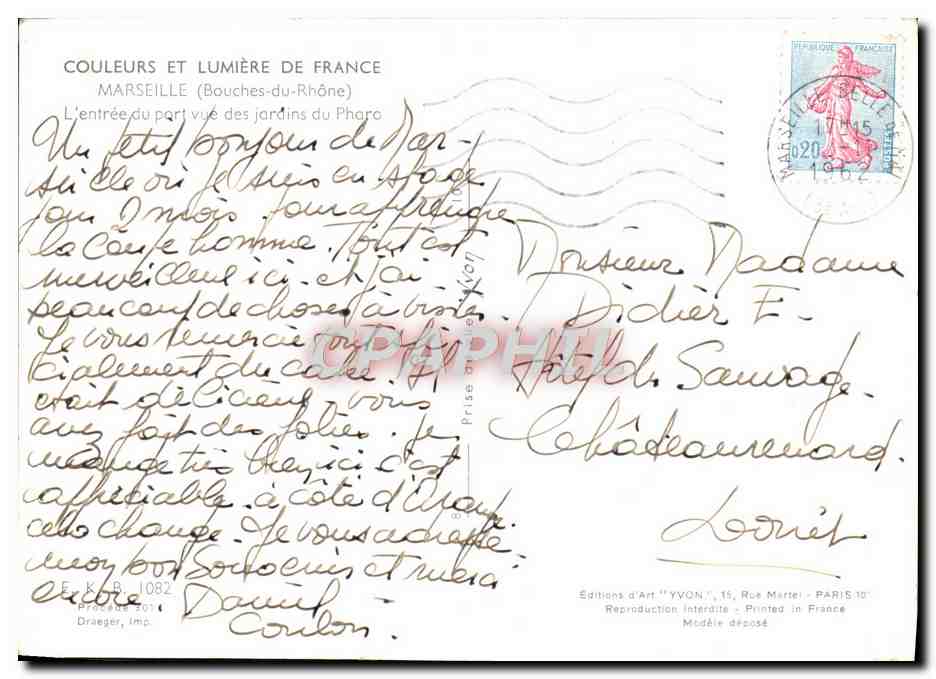 COULEURS ET LUMIÈRE DE FRANCE
MARSEILLE (Bouches-du-Rhône)
L'entrée du port vue des jardins du Pharo
Un petit bonjour de Mar-
seille où je suis en stage
pour 2 mois. pour apprendre
la Coupe homme. Tout est
merveilleux ici. et j'ai
beaucoup de choses à visiter.
Je vous remercie tout spé
cialement du cake. Il
était délicieux. vous
avez fait des folies. Je
mange très bien ici c'est
appréciable. à côté d'
cela change. Je vous adresse
mon bon Souvenir et merci
encore Daniel
Coulon.
E. K. B. 1082
Procédé 301
Draeger, Imp.
Prise de
Yvon
REPUBLIQUE FRANÇAISE
0,20
MARSEILLE BELLE DE MAI
17H15
1962
Monsieur Madame
Didier E-
Hôtel du Sauvage.
Châteaurenard.
Loiret
CPAPHIL
Éditions d'Art "YVON", 15, Rue Martel - PARIS-10e
Reproduction Interdite - Printed in France
Modèle déposé